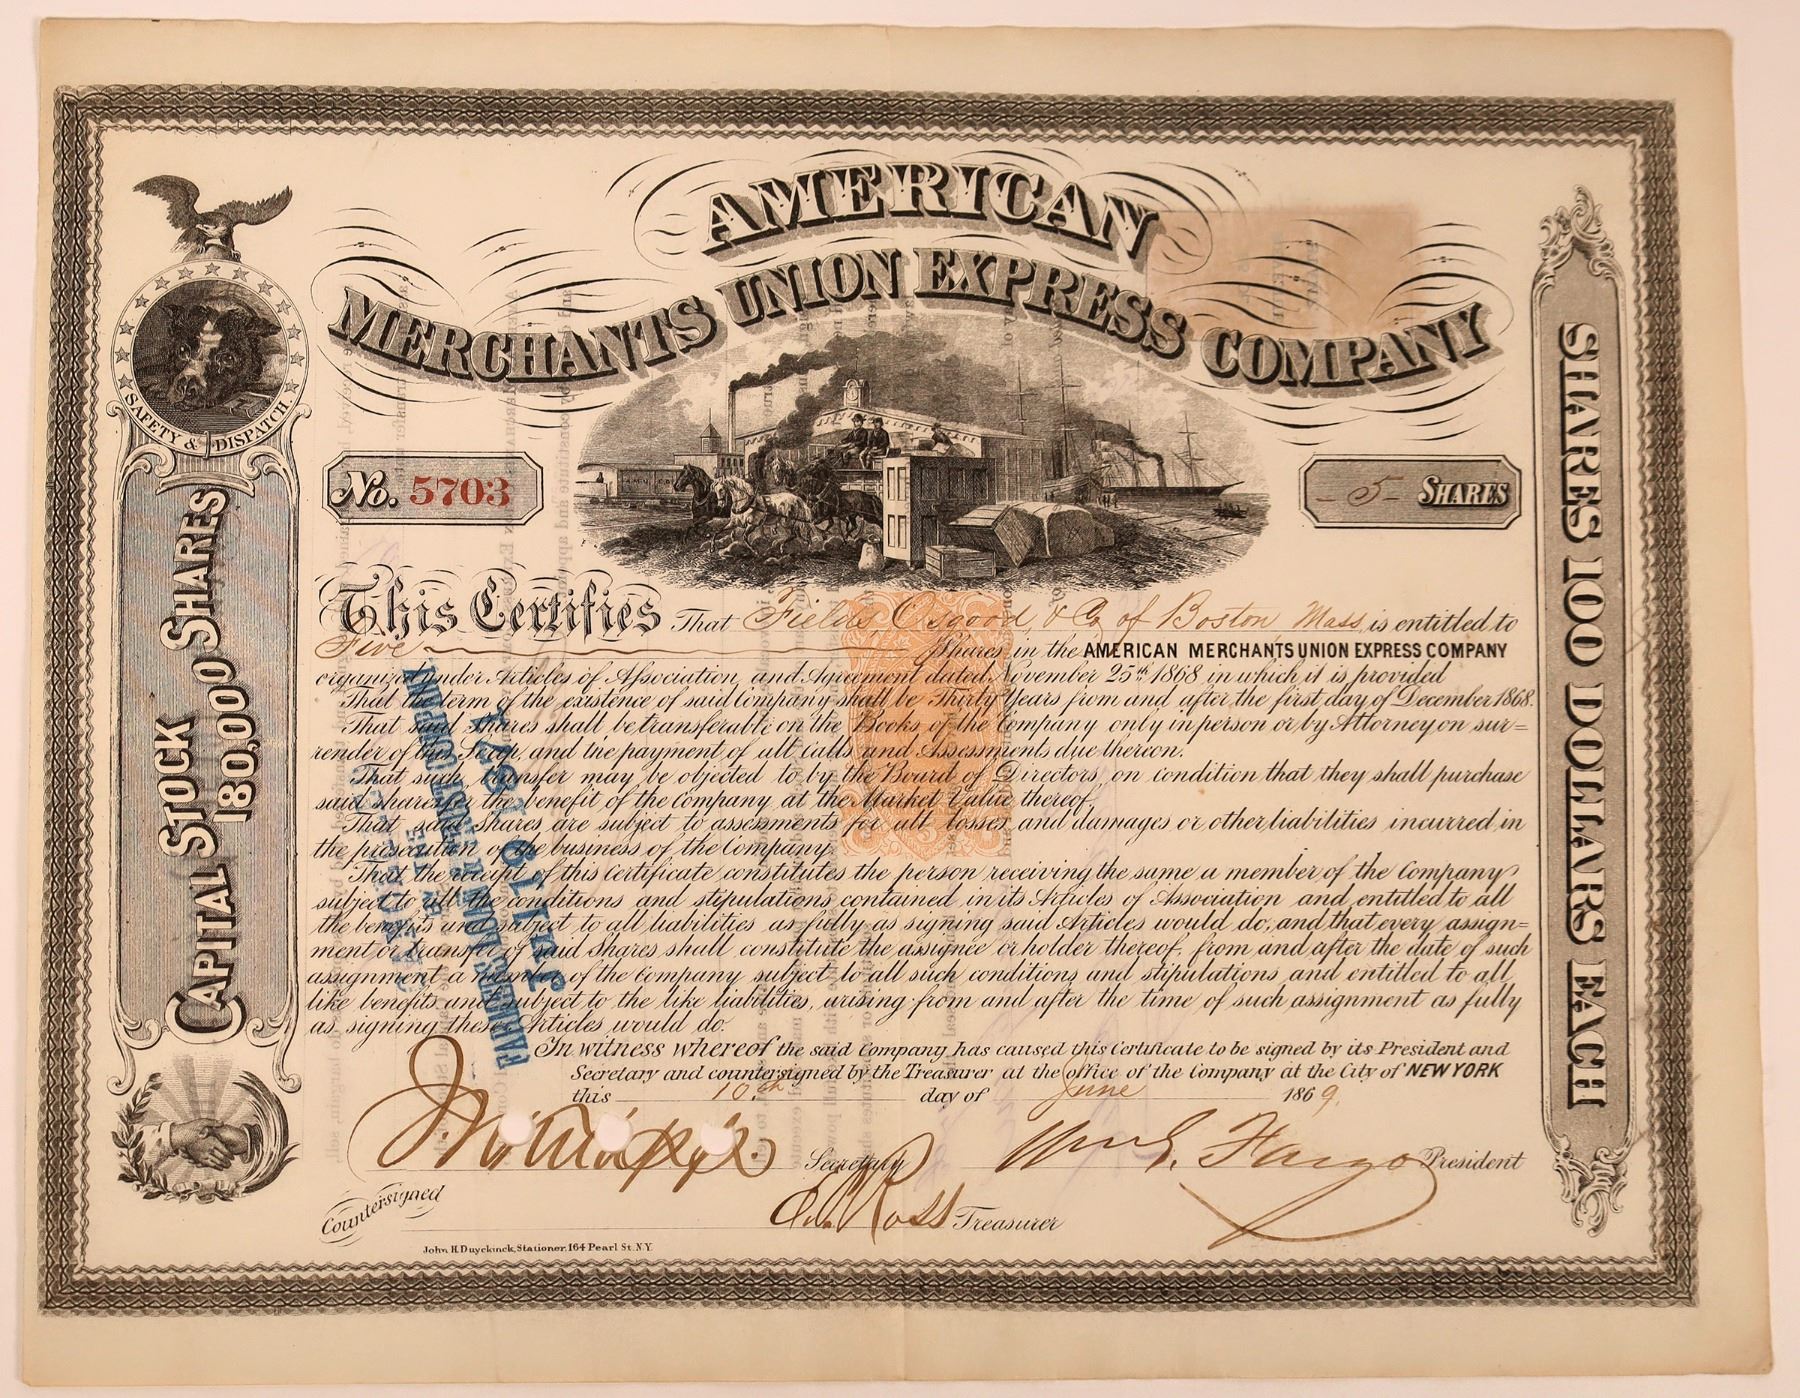 AMERICAN
MERCHANTS UNION EXPRESS COMPANY
SAFETY & DISPATCH.
No. 5703
- 5 - SHARES
CAPITAL STOCK
180,000 SHARES
SHARES 100 DOLLARS EACH
This Certifies That Fields Osgood, & Co of Boston Mass, is entitled to
Five Shares in the AMERICAN MERCHANTS UNION EXPRESS COMPANY
organized under Articles of Association and Agreement dated November 25th 1868 in which it is provided
That the term of the existence of said Company shall be Thirty Years from and after the first day of December 1868.
That said Shares shall be transferable on the Books of the Company only in person or by Attorney on sur=
render of this Scrip, and the payment of all Calls and Assessments due thereon.
That such, transfer may be objected to by the Board of Directors, on condition that they shall purchase
said shares for the benefit of the Company at the Market Value thereof.
That said Shares are subject to assessments for all losses and damages or other liabilities incurred in
the prosecution of the business of the Company.
That the receipt of this Certificate constitutes the person receiving the same a member of the Company
subject to all the conditions and stipulations contained in its Articles of Association and entitled to all
the benefits and subject to all liabilities as fully as signing said Articles would do, and that every assign=
ment or transfer of said Shares shall constitute the assignee or holder thereof, from and after the date of such
assignment, a member of the Company subject to all such conditions and stipulations and entitled to all
like benefits and subject to the like liabilities, arising from and after the time of such assignment as fully
as signing these Articles would do.
In witness whereof the said Company has caused this Certificate to be signed by its President and
Secretary and countersigned by the Treasurer at the office of the Company at the City of NEW YORK
this 10th day of June 1869.
Secretary Wm G. Fargo President
Countersigned Ross Treasurer
John H. Duyckinck, Stationer, 164 Pearl St. N.Y.